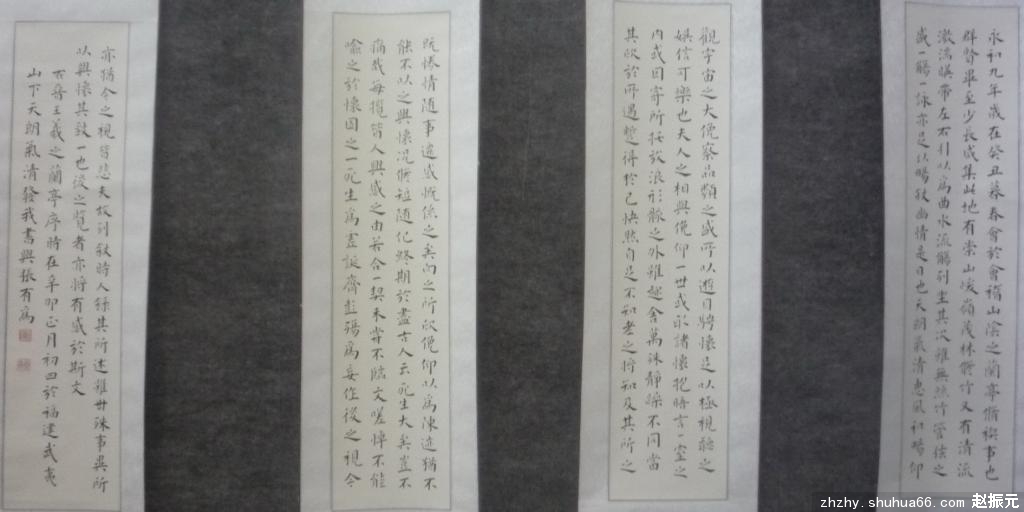 永和九年歲在癸丑暮春會於會稽山陰之蘭亭脩稧事也
群賢畢至少長咸集此地有崇山峻嶺茂林脩竹又有清流
激湍暎帶左右引以為曲水流觴列坐其次雖無絲竹管弦之
盛一觴一詠亦足以暢敘幽情是日也天朗氣清惠風和暢仰
觀宇宙之大俯察品類之盛所以遊目騁懷足以極視聽之
娛信可樂也夫人之相與俯仰一世或取諸懷抱悟言一室之
內或因寄所托放浪形骸之外雖趣舍萬殊靜躁不同當
其欣於所遇蹔得於己快然自足不知老之將至及其所之
既惓情隨事遷感慨係之矣向之所欣俛仰以為陳迹猶不
能不以之興懷況脩短隨化終期於盡古人云死生大矣豈不
痛哉每攬昔人興感之由若合一契未嘗不臨文嗟悼不能
喻之於懷固知一死生為虛誕齊彭殤為妄作後之視今
亦猶今之視昔悲夫故列敘時人錄其所述雖世殊事異所
以興懷其致一也後之覽者亦將有感於斯文
王羲之蘭亭序時在辛卯正月初四於福建武夷
山下天朗氣清發我書興張有為
zhzhy.shuhua66.com 赵振元